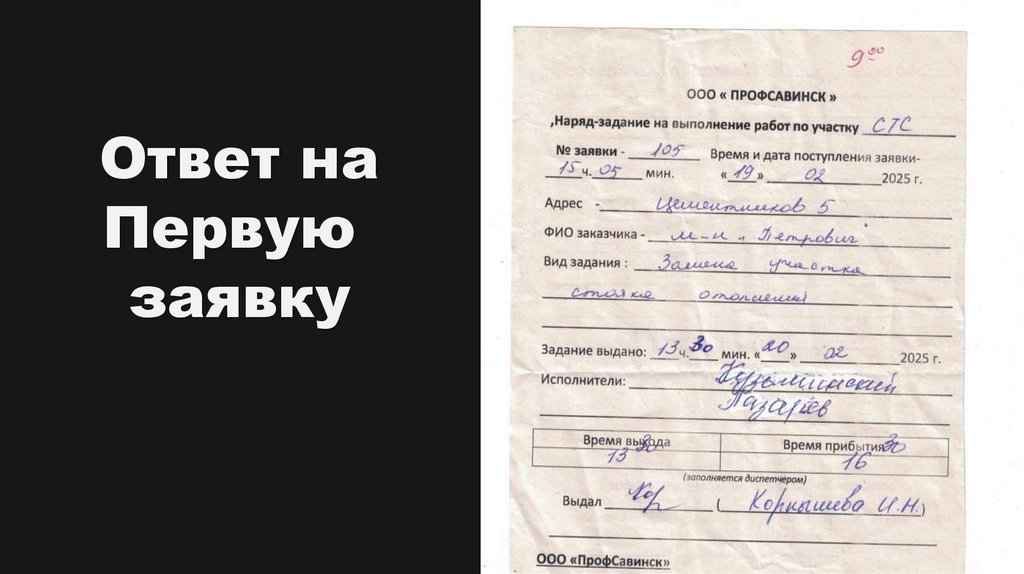 Ответ на
Первую
заявку
9 00
ООО « ПРОФСАВИНСК »
,Наряд-задание на выполнение работ по участку СТС
№ заявки - 105 Время и дата поступления заявки-
15 ч. 05 мин. « 19 » 02 2025 г.
Адрес - Цементников 5
ФИО заказчика - м-н " Петрович"
Вид задания : Замена участка
стояка отопления
Задание выдано: 13 ч. 30 мин. « 20 » 02 2025 г.
Исполнители: Кузьминский
Лазарев
Время выхода Время прибытия
13 30 16 30
(заполняется диспетчером)
Выдал Кор ( Корнышева И.Н. )
ООО «ПрофСавинск»